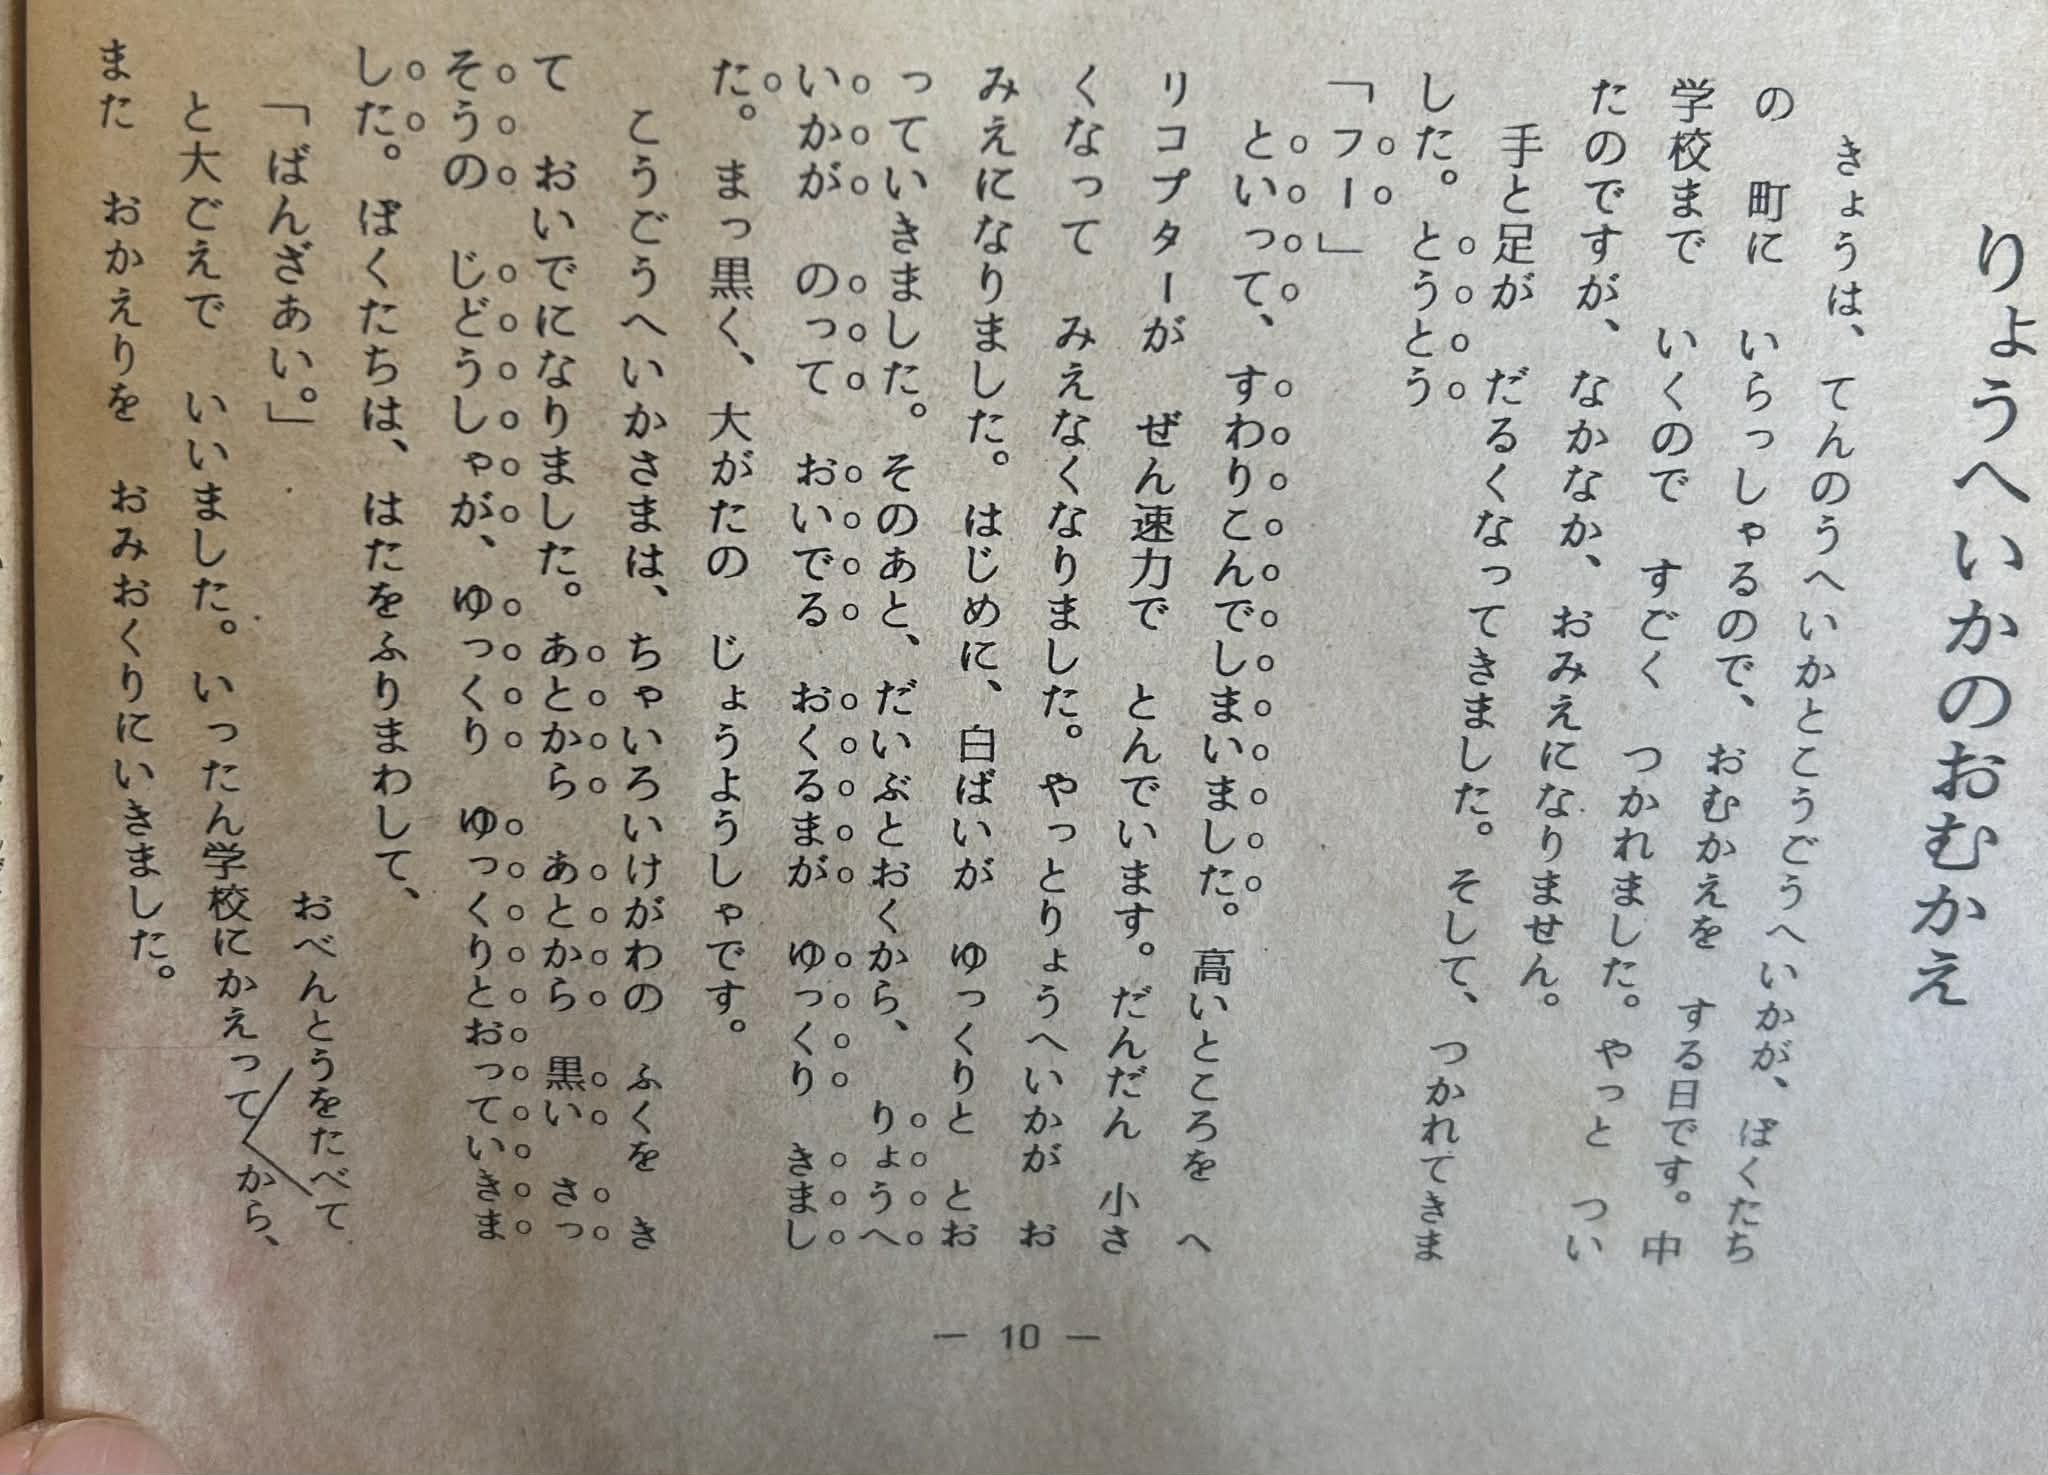 りょうへいかのおむかえ
きょうは、てんのうへいかとこうごうへいかが、ぼくたち
の 町に いらっしゃるので、おむかえを する日です。中
学校まで いくので すごく つかれました。やっと つい
たのですが、なかなか、おみえになりません。
手と足が だるくなってきました。そして、つかれてきま
した。とうとう
「フー」
といって、すわりこんでしまいました。高いところを へ
リコプターが ぜん速力で とんでいます。だんだん 小さ
くなって みえなくなりました。やっとりょうへいかが お
みえになりました。はじめに、白ばいが ゆっくりと とお
っていきました。そのあと、だいぶとおくから、 りょうへ
いかが のって おいでる おくるまが ゆっくり きまし
た。まっ黒く、大がたの じょうようしゃです。
こうごうへいかさまは、ちゃいろいけがわの ふくを き
て おいでになりました。あとから あとから 黒い さっ
そうの じどうしゃが、ゆっくり ゆっくりとおっていきま
した。ぼくたちは、はたをふりまわして、
「ばんざあい。」
と大ごえで いいました。いったん学校にかえってから、
おべんとうをたべて
また おかえりを おみおくりにいきました。
— 10 —